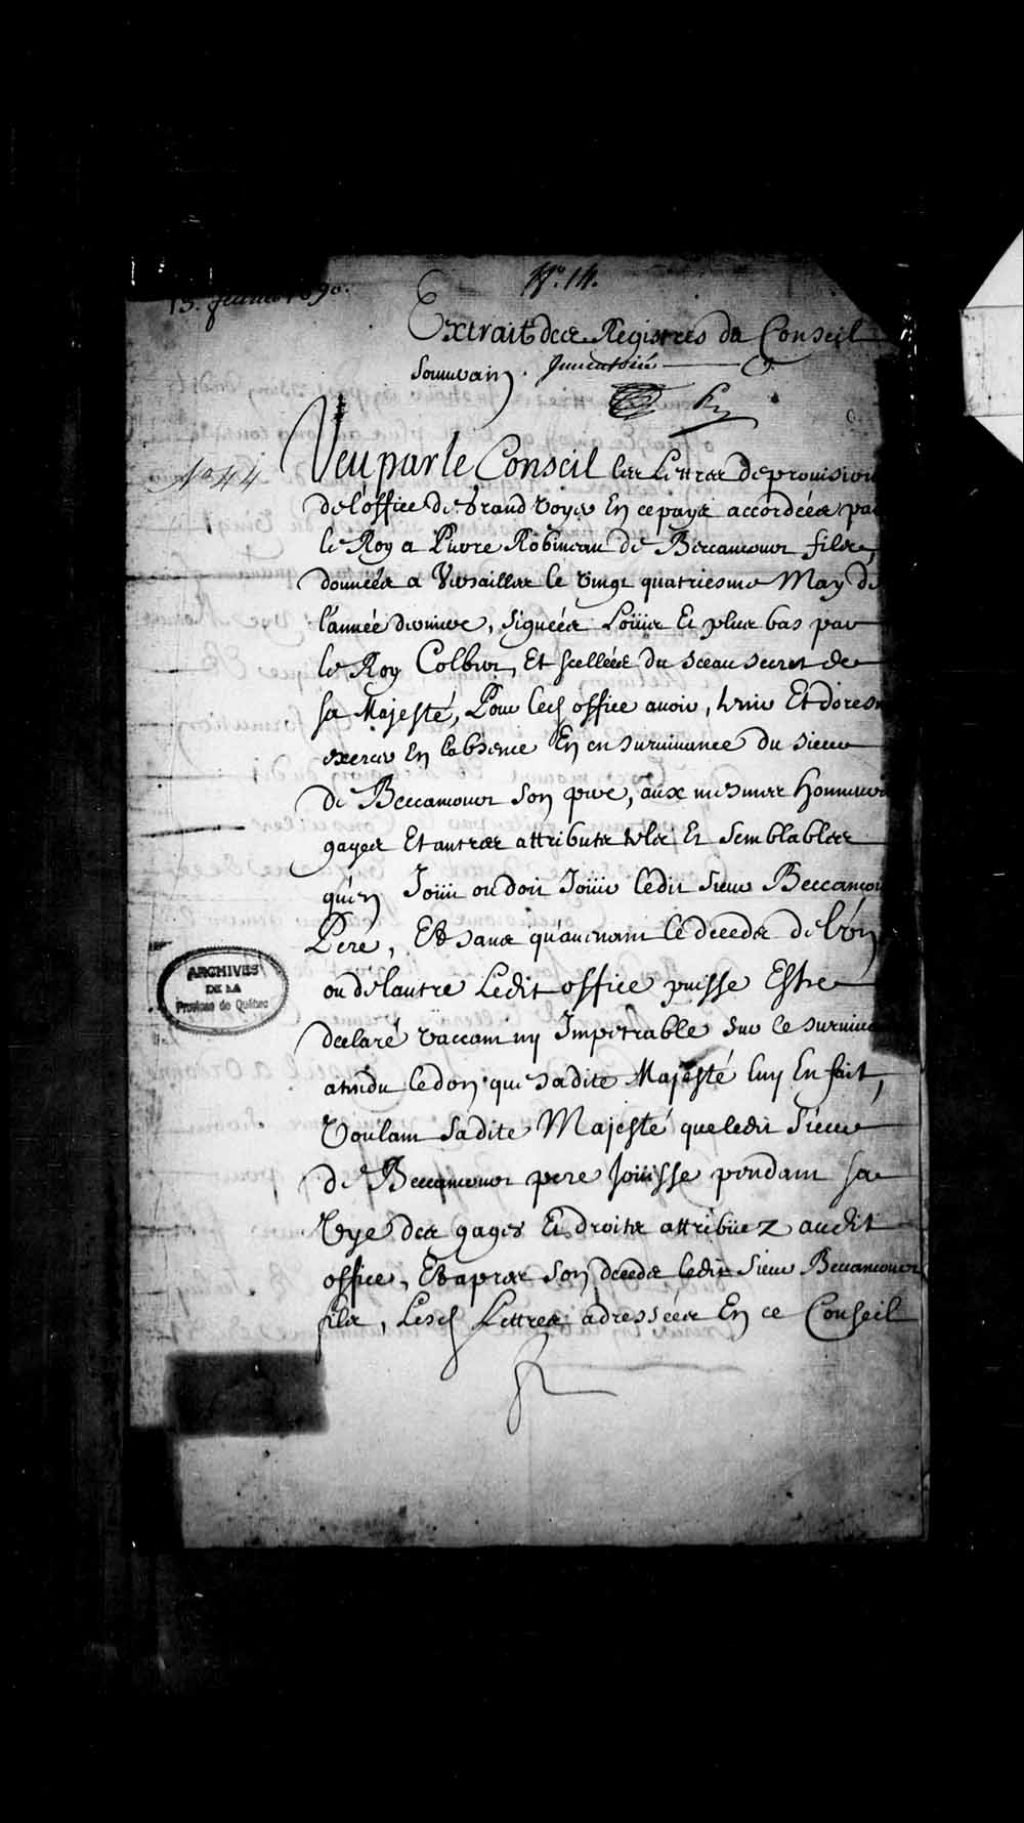 N.° 14.
13. feurier 1690.
Extrait des Registres du Conseil
Souuerain. Inuentorié
N° 44
Veu par le Conseil les Lettres de prouision
de l'office de Grand Voyer En ce pays accordées par
le Roy a Pierre Robineau de Beccancour fils,
données a Versailles le vingt quatriesme May de
l'année derniere, signées Loüis Et plus bas par
le Roy Colbert, Et scellées du sceau secret de
sa Majesté, Pour led office auoir, tenir Et dores
exercer En l'absence En en suruiuance du sieur
de Beccancour son pere, aux mesmes Honneurs
gages Et autres attributs tels Et semblables
qu'en Joüit ou doit Joüir ledit sieur Beccancour
Pere, Et sans qu'auenant le deceds de l'vn
ou de l'autre Ledit office puisse Estre
declaré vaccant ny Impetrable sur le suruiuant
atendu le don que sadite Majesté luy En fait,
Voulant sadite Majesté que ledit Sieur
de Beccancour pere Joüisse pendant sa
Vye des gages Et droits attribüez audit
office, Et apres son deceds ledit sieur Beccancour
fils, Lesd Lettres adressées En ce Conseil
ARCHIVES
DE LA
Province de Québec